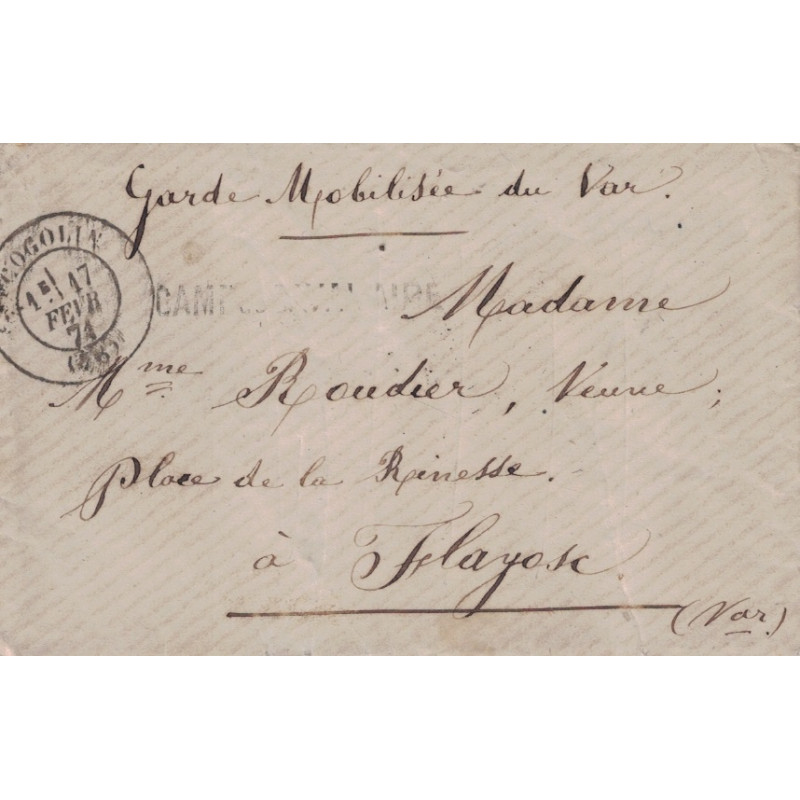 Garde Mobilisée du Var.
COGOLIN
1E/
17
FEVR
71
(78)
CAMP
Madame
Mme Roudier, Veuve;
Place de la Rinesse.
à Flayosc
(Var.)